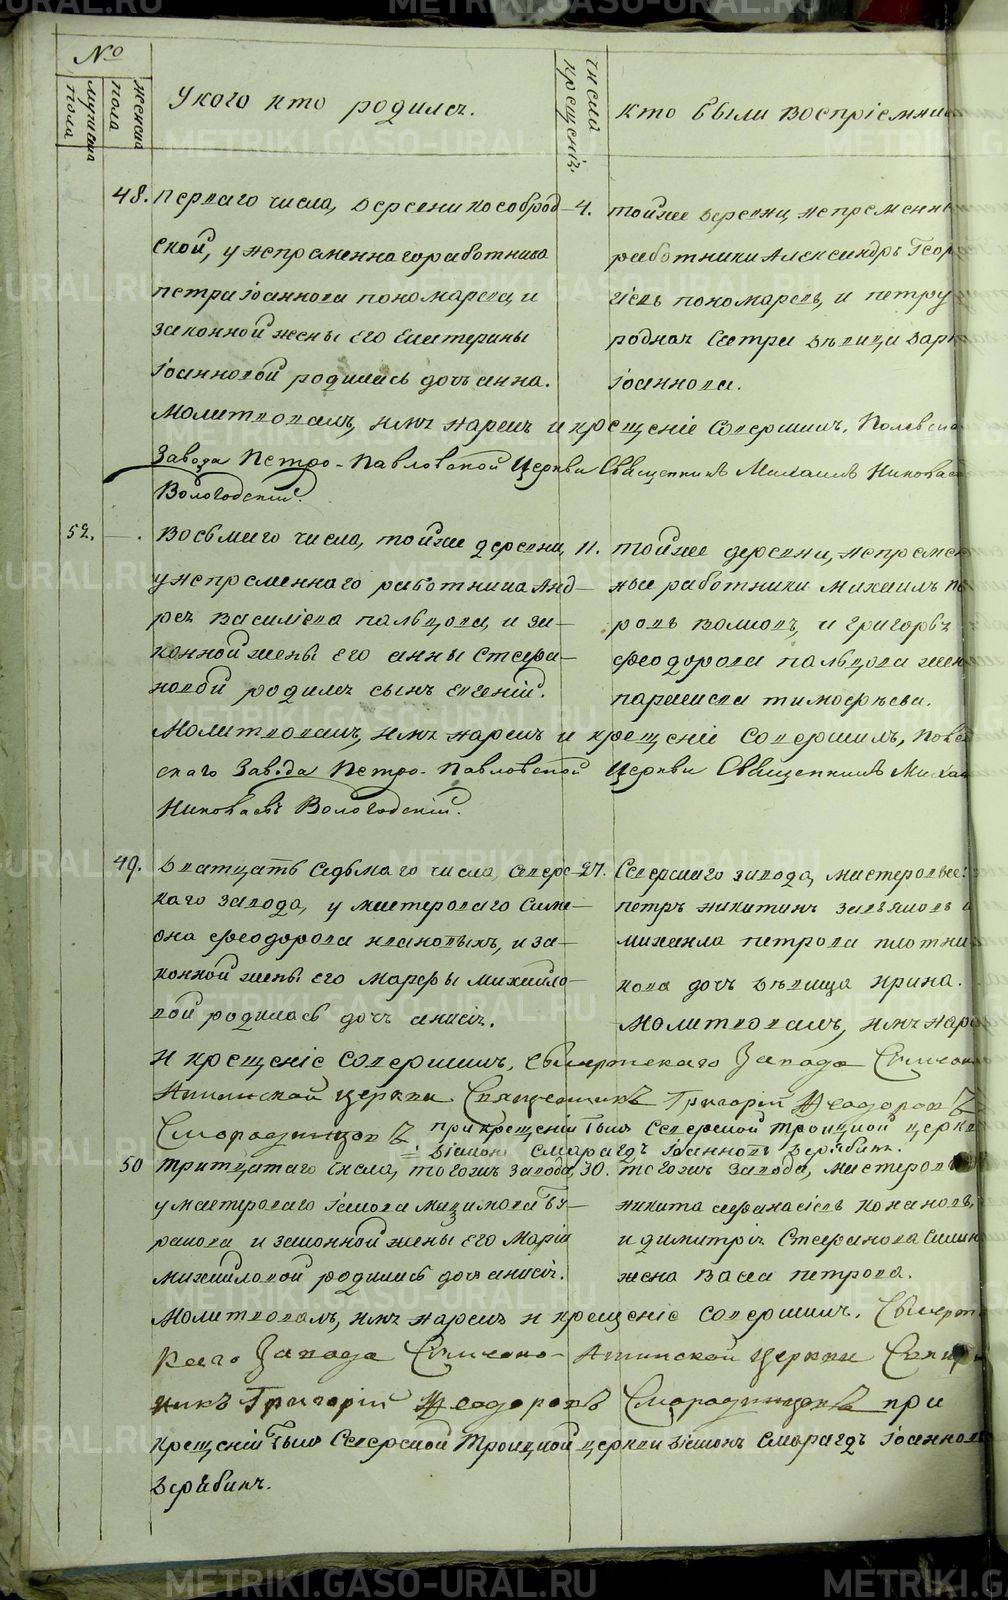 №
мужеска пола
женска пола
У кого кто родилсѧ.
числа крещенія.
Кто были воспріемни
48. перваго числа, деревни кособрод-
ской, у непременнаго работника
петра іоаннова пономарева, и
законной жены его екатерины
іоанновой родилась дочь анна.
4. тойже деревни непременн
работники Александръ Геор
гіевъ пономаревъ, и петру
родная сестра девица дар
іоаннова.
Молитвовалъ, имя нарекъ и крещеніе совершилъ, Полевска
Завода Петро-Павловской Церкви Священникъ Михаилъ Николаев
Вологодскій.
52. —. Восьмаго числа, тойже деревни,
у непременнаго работника Анд-
рея василіева пальцова, и за-
конной жены его анны Стефа-
новой родился сынъ евгеній.
11. тойже деревни, непремен
ные работники Михаилъ
ровъ волковъ, и григорья
феодорова пальцова жен
параскева тимофѣева.
Молитвовалъ, имя нарекъ и крещеніе совершилъ, Полев
скаго Завода Петро-Павловской Церкви Священникъ Миха
Николаевъ Вологодскій.
49. Дватцать седьмаго числа, северс-
каго завода, у мастероваго Симе-
она феодорова ивановыхъ, и за-
конной жены его Марфы михайло-
вой родилась дочь анисія.
27. Северскаго завода, мастеровые:
петръ никитинъ завьяловъ и
михаила петрова плотни
кова дочь девица ирина.
Молитвовалъ, имя наре
и крещеніе совершилъ, Сысертскаго Завода Симеоно
Аннинской церкви Священникъ Григорій Феодоровъ
Смородинцовъ при крещеніи былъ Северской троицкой церкв
діаконъ Смарагдъ іоанновъ дерябинъ.
50 тритцатаго числа, тогожъ завода,
у мастероваго іакова максимова бу-
ракова и законной жены его Маріи
михайловой родилась дочь анисія.
30. тогожъ завода, мастеров
никита афанасіевъ конановъ,
и димитрія Стефанова
жена васса петрова.
Молитвовалъ, имя нарекъ и крещеніе совершилъ. Сысерт
скаго Завода Симеоно-Аннинской церкви Свящ
никъ Григорій Феодоровъ Смородинцовъ при
крещеніи былъ Северской троицкой церкви діаконъ Смарагдъ іоанновъ
дерябинъ.
METRIKI.GASO-URAL.RU